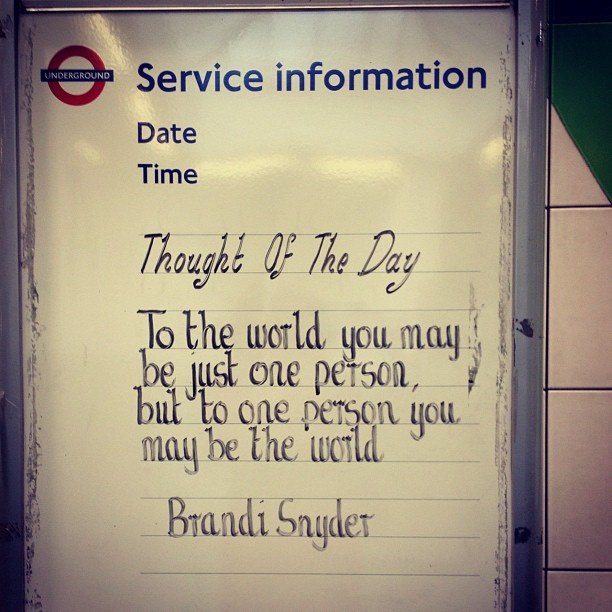 UNDERGROUND
Service information
Date
Time
Thought Of The Day
To the world you may
be just one person,
but to one person you
may be the world
Brandi Snyder